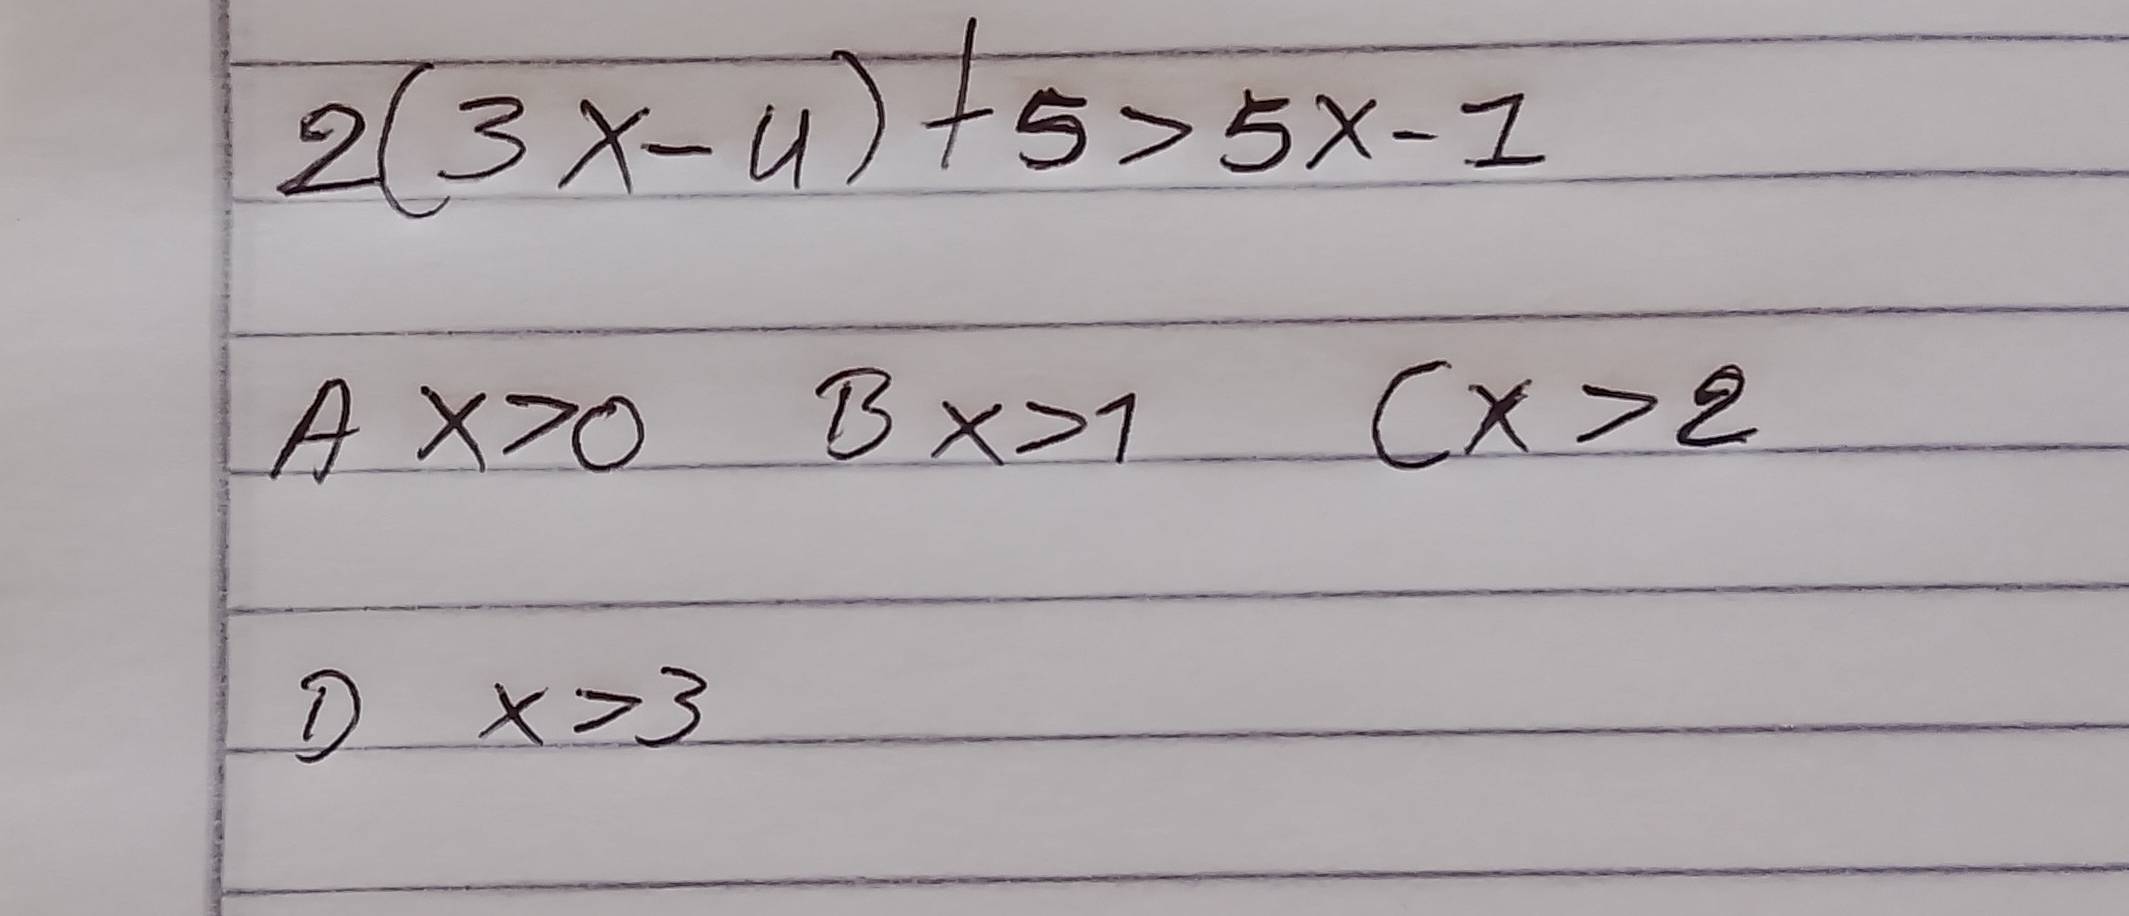 2(3x-4)+5>5x-1
A x>0 B x>1 C x>2
D x>3